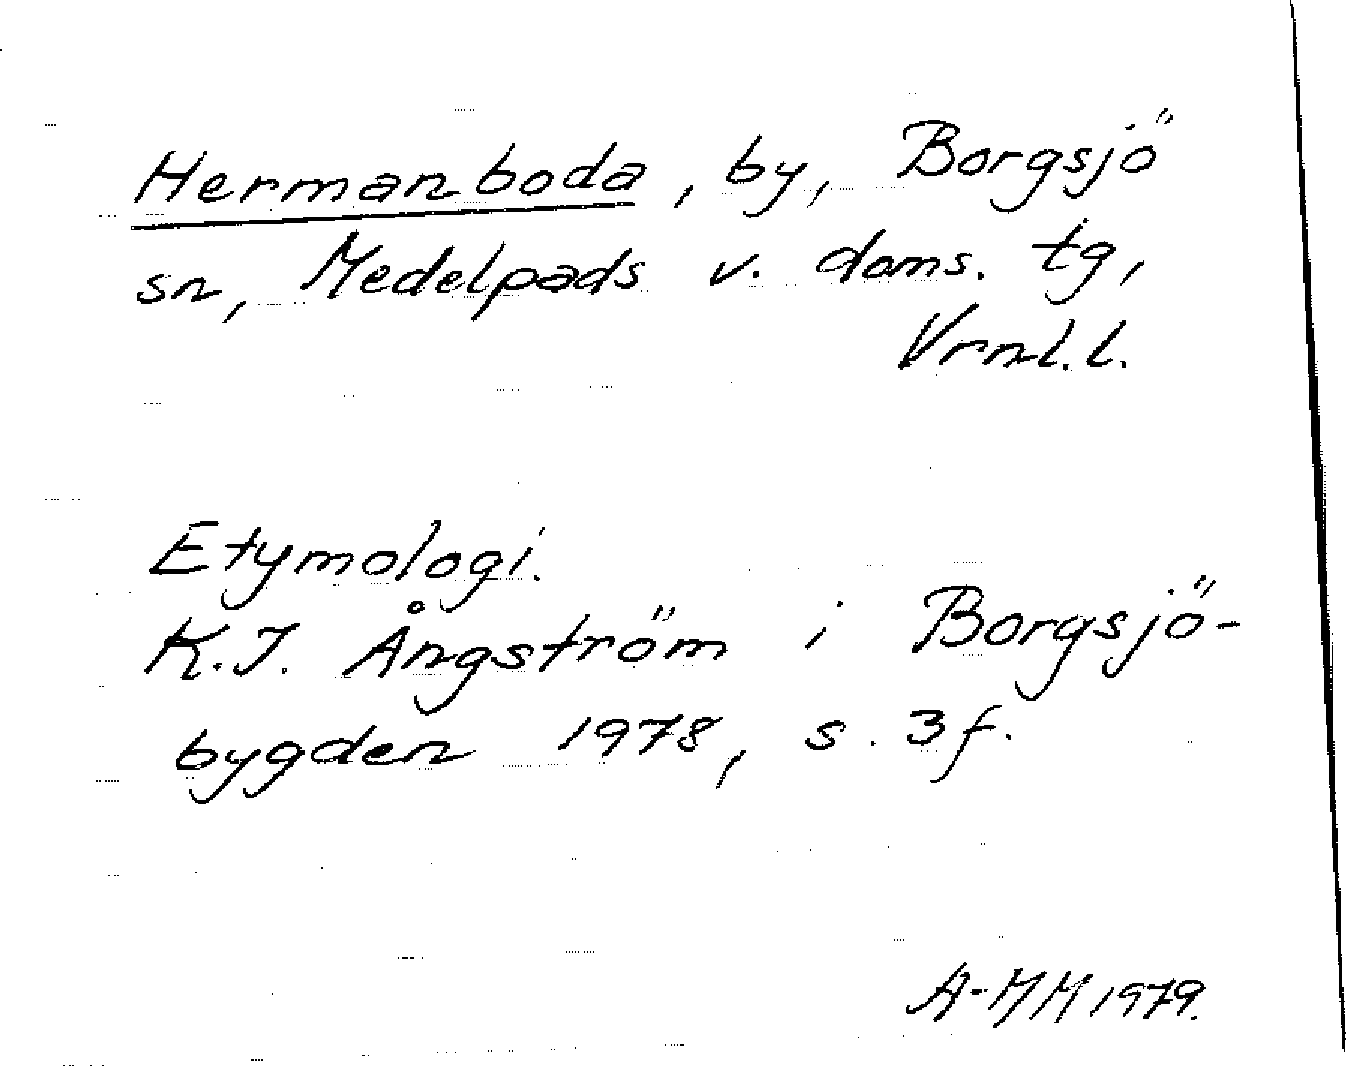 Hermanboda, by, Borgsjö
sn, Medelpads v. doms. tg,
Vrnl. l.
Etymologi.
K.J. Ångström i Borgsjö-
bygden 1978, s. 3 f.
A-MM 1979.